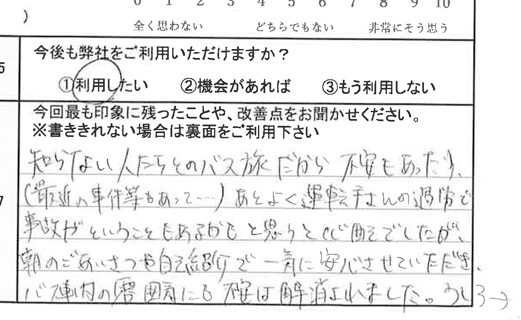 0 1 2 3 4 5 6 7 8 9 10
) 全く思わない どちらでもない 非常にそう思う
5 今後も弊社をご利用いただけますか？
①利用したい ②機会があれば ③もう利用しない
今回最も印象に残ったことや、改善点をお聞かせください。
※書ききれない場合は裏面をご利用下さい
知らない人たちとのバス旅だから 不安もあったり、
7 (最近の事件等もあって…) あとよく運転手さんの過労で
事故がということもあるかもと思うと心配でしたが、
朝のごあいさつや自己紹介で一気に安心させていただき、
バス車内の雰囲気にも不安は解消されました。うしろ→